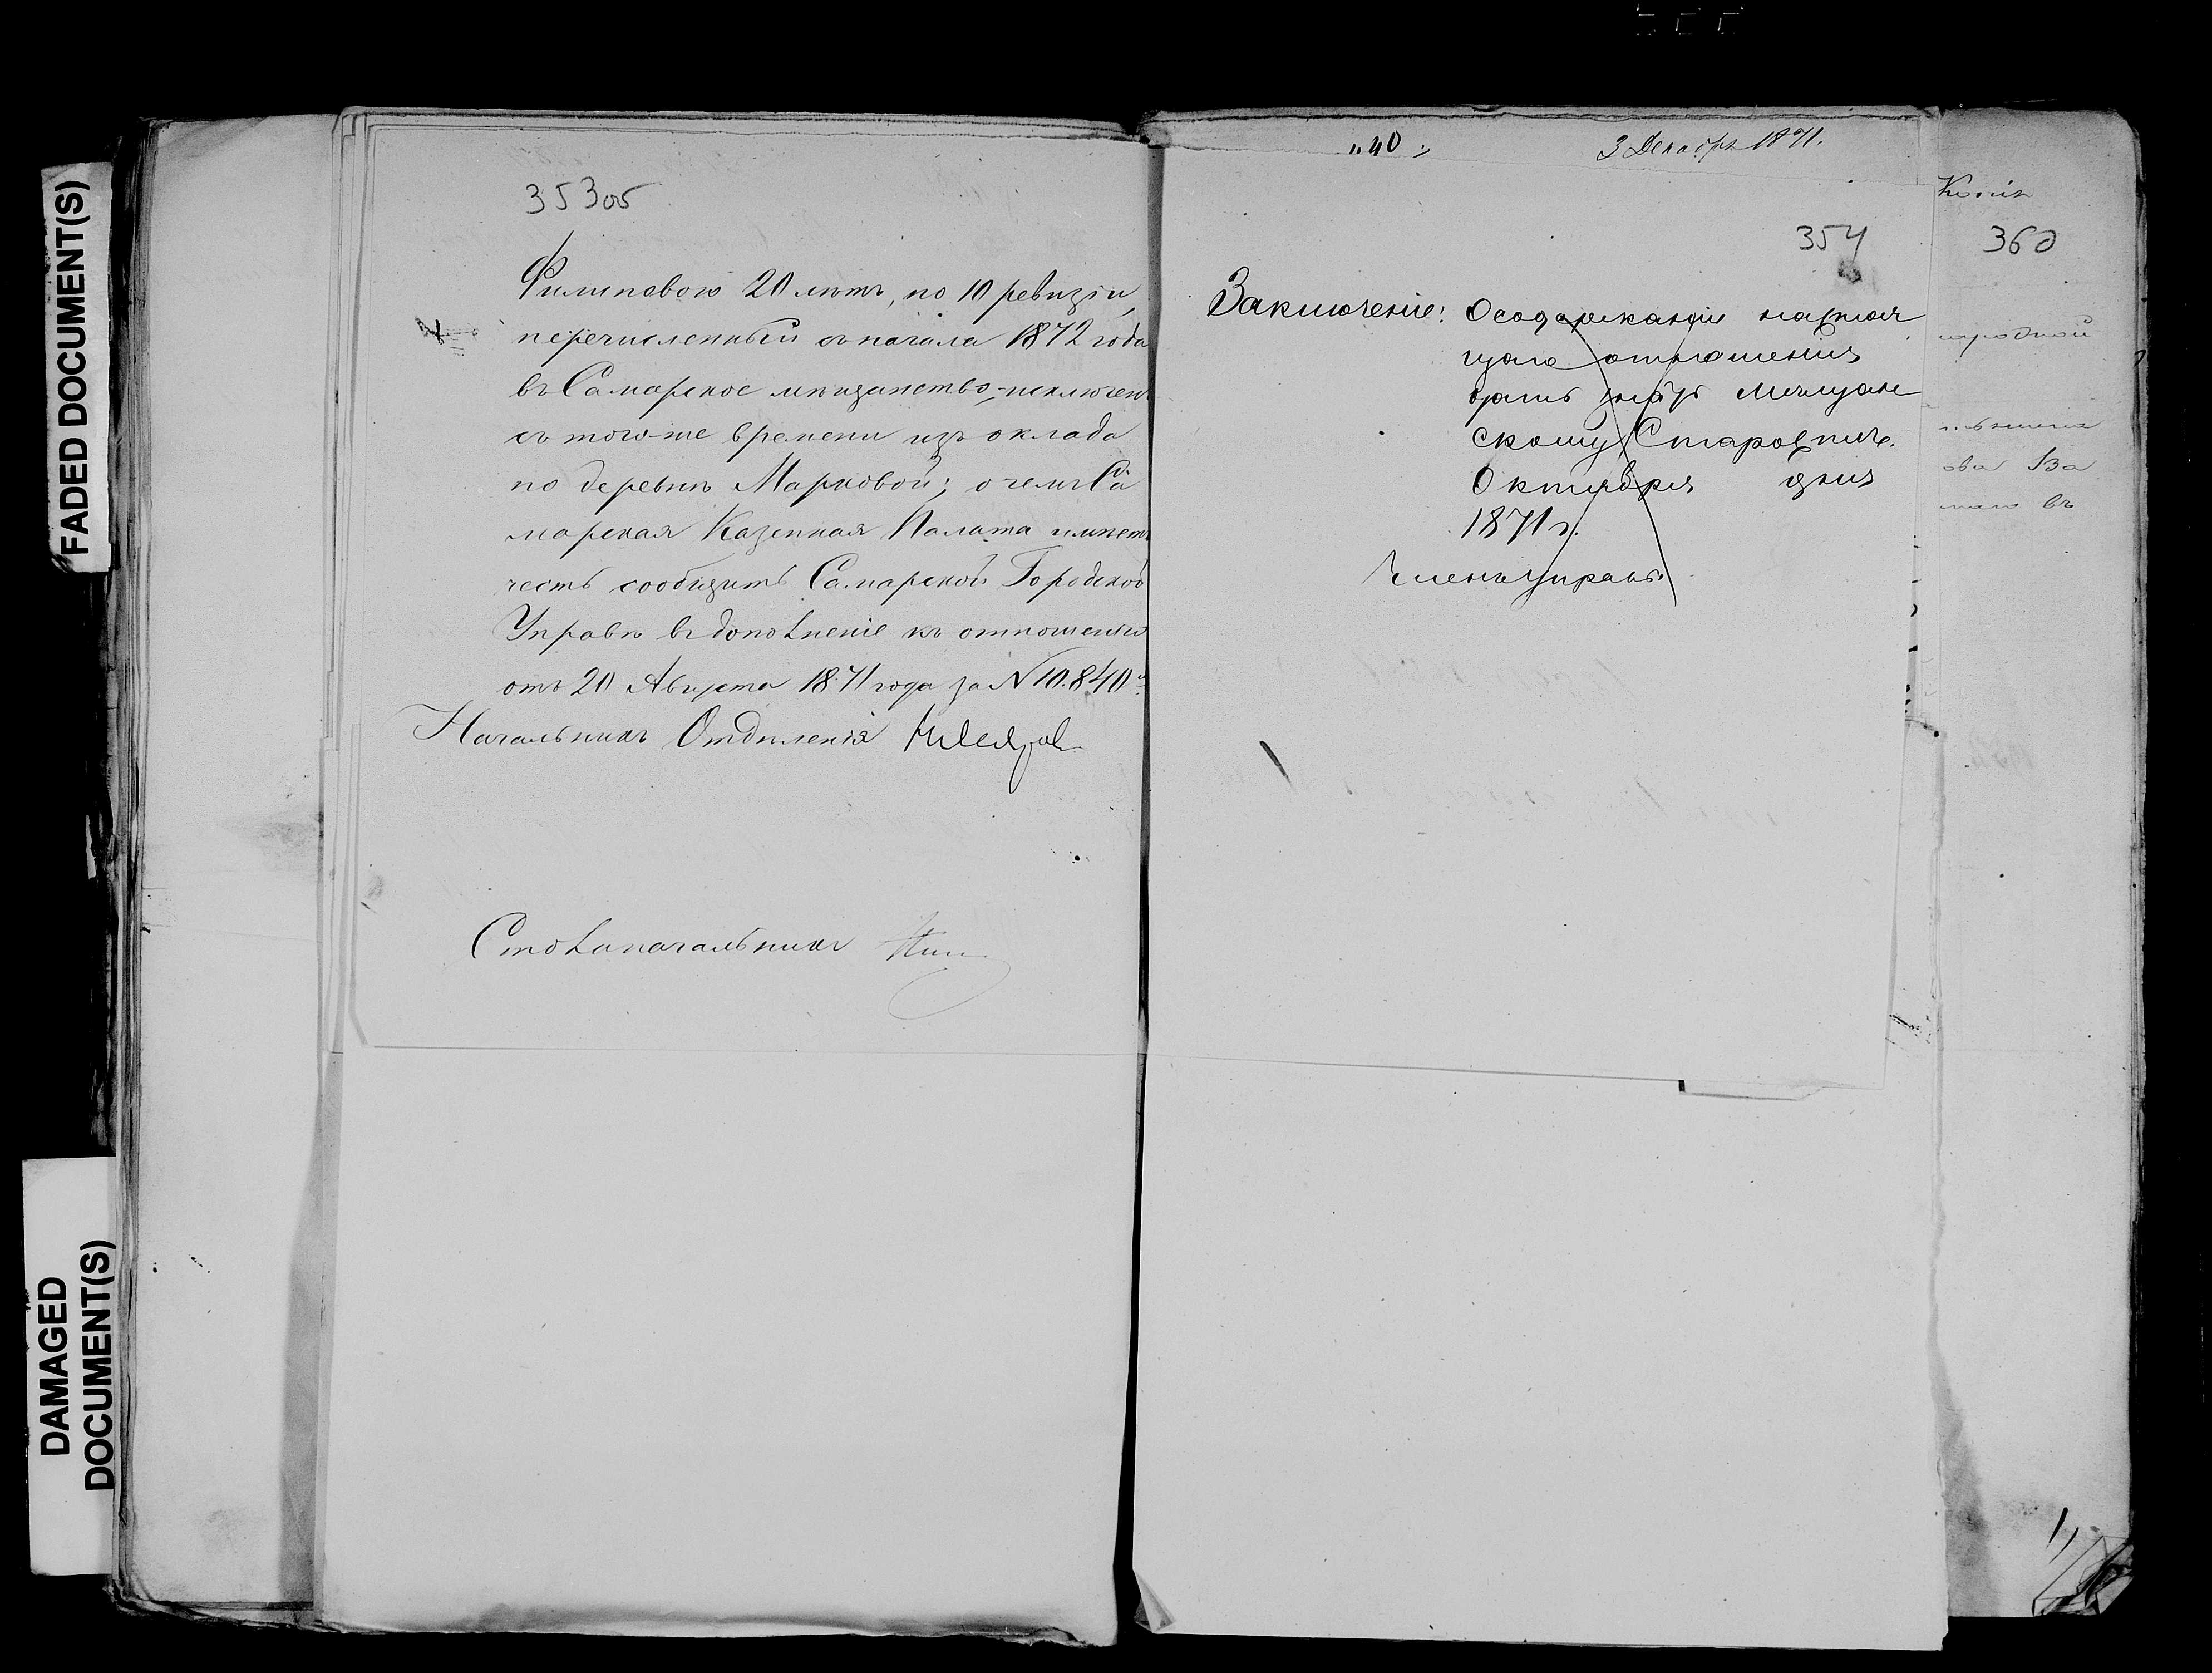 FADED DOCUMENT(S)
DAMAGED
DOCUMENT(S)
353об
Филиповою 20 лѣтъ, по 10 ревизіи,
перечисленный съ начала 1872 года
въ Самарское мѣщанство, исключенъ
съ того-же времени изъ оклада
по деревнѣ Марковой; о чемъ Са
марская Казенная Палата имѣетъ
честь сообщить Самарской Городской
Управѣ въ дополненіе къ отношенію
отъ 20 Августа 1871 года за № 10.840
Начальникъ Отдѣленія
Столоначальникъ
"40"
3 Декабря 1871.
354
Заключеніе: О содержаніи настоя
щаго отношенія
дать знать Мѣщан
скому Старостѣ.
Октября дня
1871 г.
Членъ Управы
Копія
360
ова Ва
въ